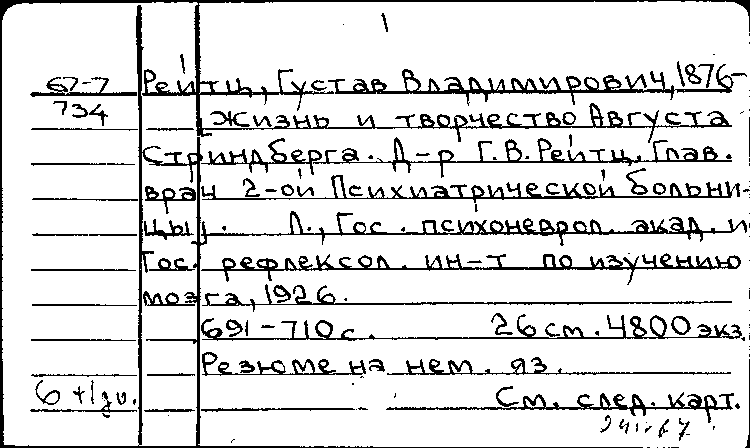 1
67-7 Рейтц, Густав Владимирович, 1876-
734 [Жизнь и творчество Августа
Стриндберга. Д-р Г.В.Рейтц. Глав.
врач 2-ой Психиатрической больни-
цы]. Л., Гос. психоневрол. акад. и
Гос. рефлексол. ин-т по изучению
мозга, 1926.
691-710 с. 26 см. 4800 экз.
Резюме на нем. яз.
См. след. карт.